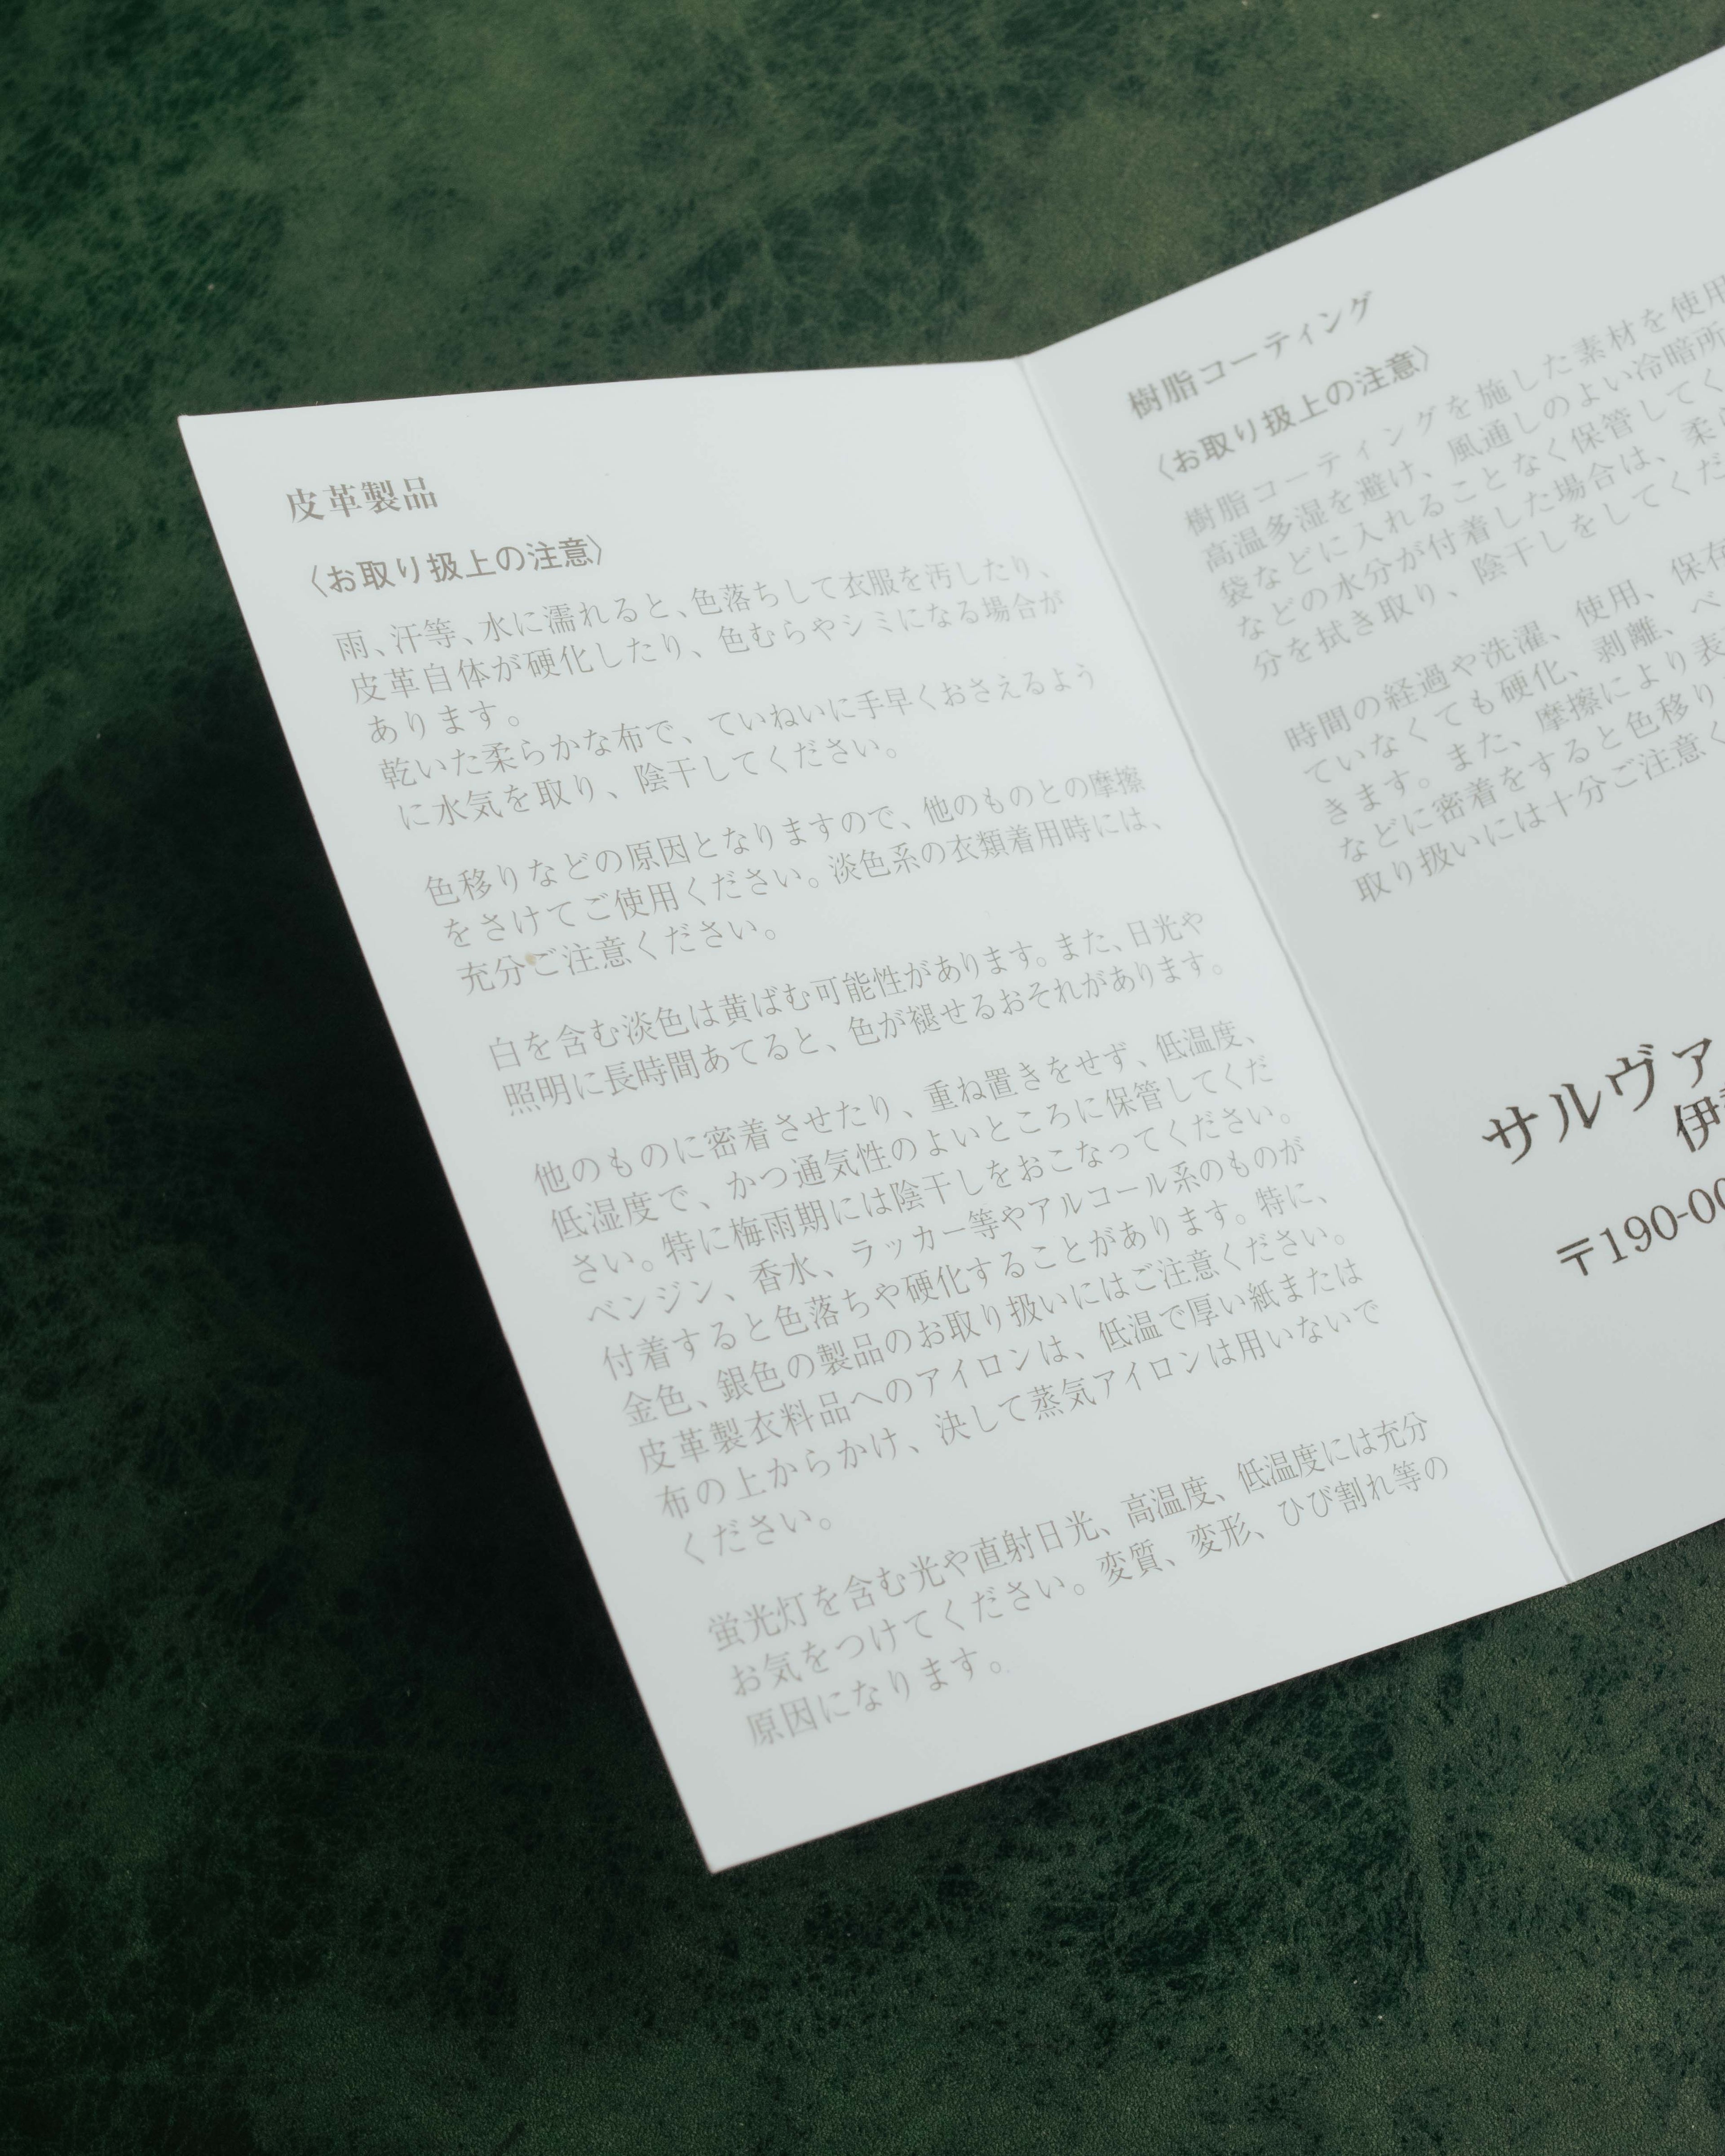 皮革製品
〈お取り扱上の注意〉
雨、汗等、水に濡れると、色落ちして衣服を汚したり、
皮革自体が硬化したり、色むらやシミになる場合が
あります。
乾いた柔らかな布で、ていねいに手早くおさえるよう
に水気を取り、陰干してください。
色移りなどの原因となりますので、他のものとの摩擦
をさけてご使用ください。淡色系の衣類着用時には、
充分ご注意ください。
白を含む淡色は黄ばむ可能性があります。また、日光や
照明に長時間あてると、色が褪せるおそれがあります。
他のものに密着させたり、重ね置きをせず、低温度、
低湿度で、かつ通気性のよいところに保管してくだ
さい。特に梅雨期には陰干しをおこなってください。
ベンジン、香水、ラッカー等やアルコール系のものが
付着すると色落ちや硬化することがあります。特に、
金色、銀色の製品のお取り扱いにはご注意ください。
皮革製衣料品へのアイロンは、低温で厚い紙または
布の上からかけ、決して蒸気アイロンは用いないで
ください。
蛍光灯を含む光や直射日光、高温度、低温度には充分
お気をつけてください。変質、変形、ひび割れ等の
原因になります。
樹脂コーティング
〈お取り扱上の注意〉
樹脂コーティングを施した素材を使用
高温多湿を避け、風通しのよい冷暗所
袋などに入れることなく保管してく
などの水分が付着した場合は、柔
分を拭き取り、陰干しをしてくだ
時間の経過や洗濯、使用、保存
ていなくても硬化、剥離、ベ
きます。また、摩擦により表
などに密着をすると色移り
取り扱いには十分ご注意く
サルヴァ
伊
〒190-00